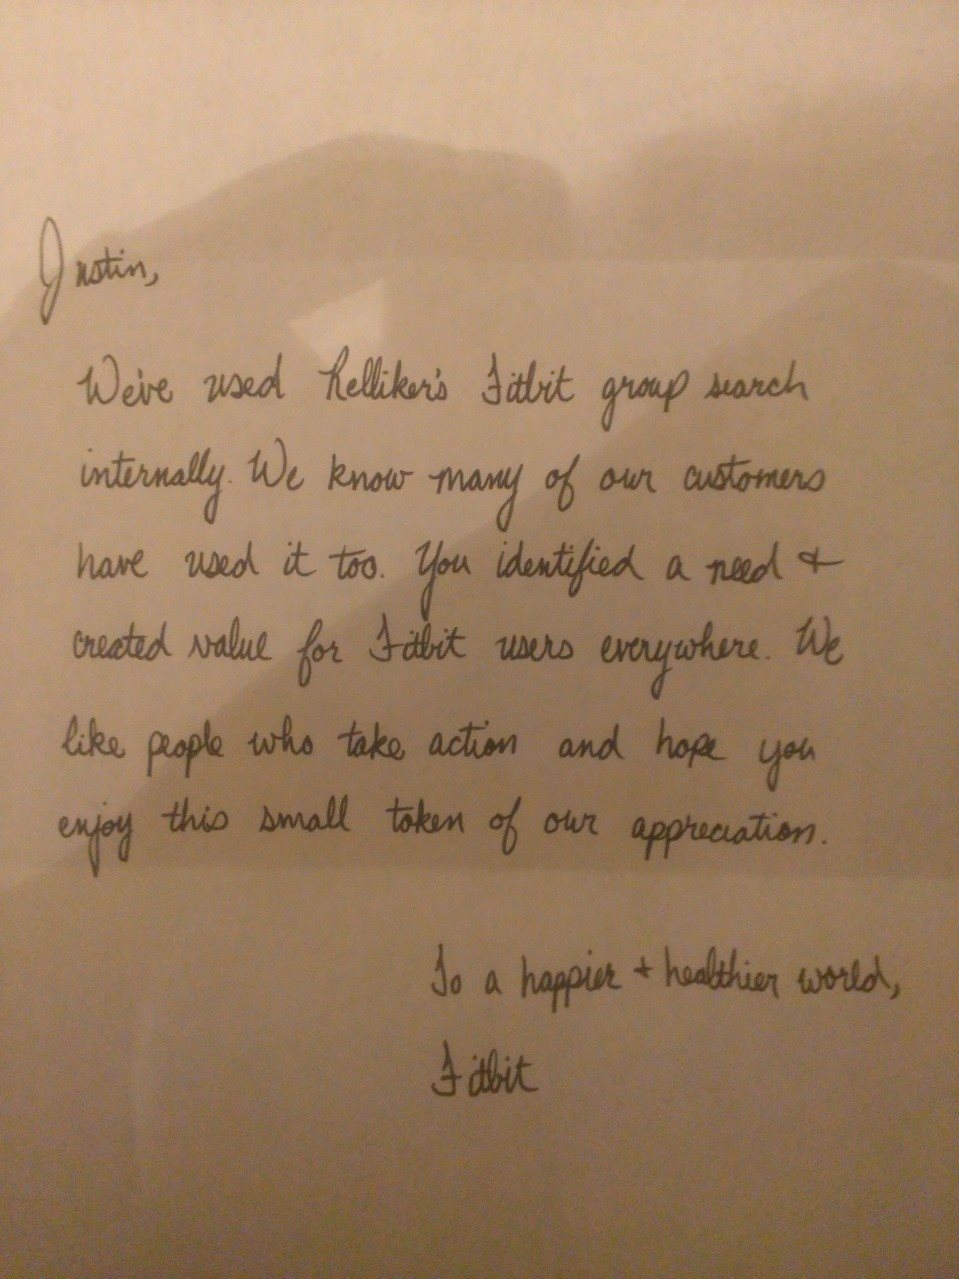 Justin,
We've used Kelliker's Fitbit group search
internally. We know many of our customers
have used it too. You identified a need &
created value for Fitbit users everywhere. We
like people who take action and hope you
enjoy this small token of our appreciation.
To a happier + healthier world,
Fitbit